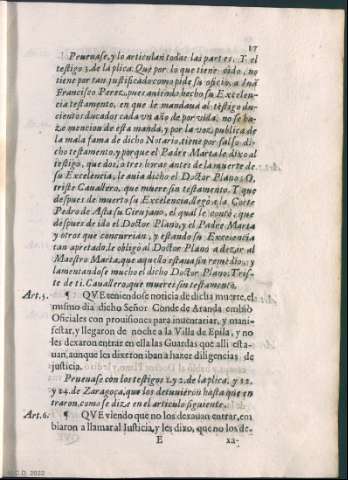 17
¶ Peuruase, y lo articulan todas las partes. Y el
testigo 3. de la plica. Que por lo que tiene oido, no
tiene por tan justificado como pide su oficio, a Iuã
Francisco Perez, pues auiendo hecho su Excelen-
cia testamento, en que le mandaua al testigo du-
cientos ducados cada vn año de por vida, no se ha-
ze mencion de esta manda, y por la voz, publica de
la mala fama de dicho Notario, tiene por falso di-
cho testamento, y porque el Padre Marta le dixo al
testigo, que dos, ò tres horas antes de la muerte de
su Excelencia, le auia dicho el Doctor Plano: O,
triste Cauallero, que muere sin testamento. Y que
despues de muerto su Excelencia, llegò a la Corte
Pedro de Asta su Cirujano, el qual le contò, que
despues de ido el Doctor Plano, y el Padre Marta
y otros que concurrian, y estando su Excelencia
tan apretado, le obligò al Doctor Plano a dezir al
Maestro Marta, que aquello estaua sin remedio, y
lamentandose mucho el dicho Doctor Plano: Tris-
te de ti, Cauallero, que mueres sin testamento.
Art. 5. ¶ QVE teniendose noticia de dicha muerte, el
mismo dia dicho Señor Conde de Aranda embiò
Oficiales con prouisiones para inuentariar, y mani-
festar, y llegaron de noche a la Villa de Epila, y no
les dexaron entrar en ella las Guardas que alli esta-
uan, aunque les dixeron iban a hazer diligencias de
justicia.
Peuruase con los testigos 1. y 2. de la plica, y 22.
y 24. de Zaragoça, que los detuuieron hasta que en
traron, como se dize en el articulo siguiente.
Art. 6. ¶ QVE viendo que no los dexauan entrar, em
biaron a llamar al Iusticia, y les dixo, que no los de-
E xa-
C.D. 2022